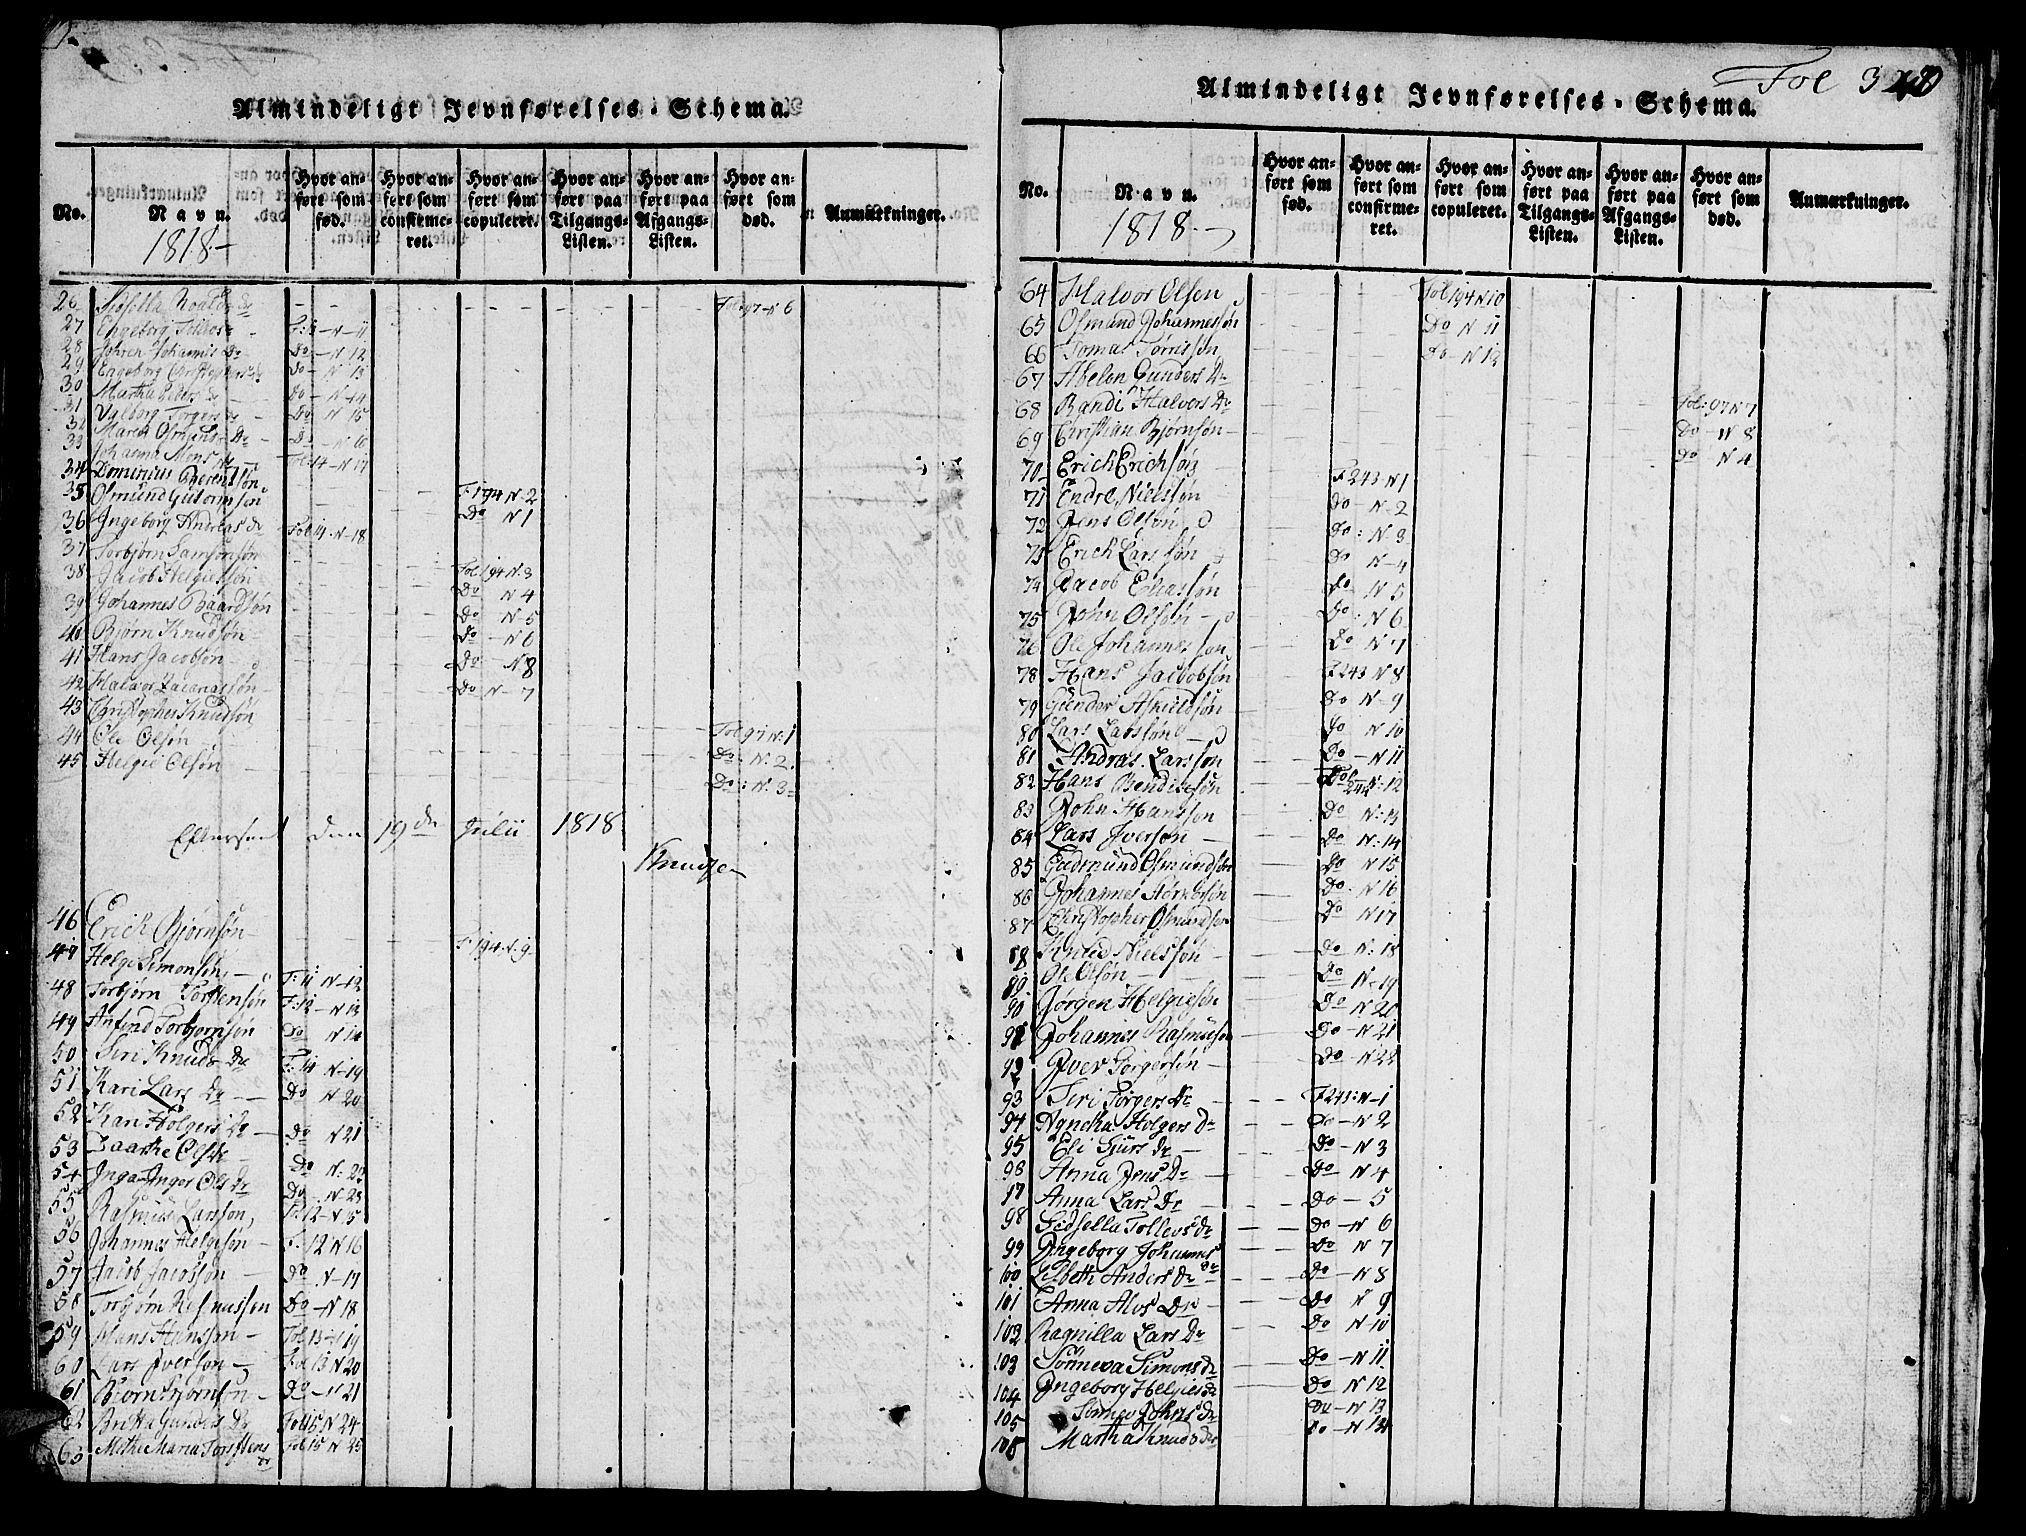 Almindeligt Jevnførelses-Schema.
No.
Navn.
1818-
Hvor anført som fød.
Hvor anført som confirmeret.
Hvor anført som copuleret.
Hvor anført paa Tilgangs-Listen.
Hvor anført paa Afgangs-Listen.
Hvor anført som død.
Anmærkninger.
26 Roalds dr Fol 97-N 6
27 Engeborg
28 Johannis Dr Do-N 12
29 Engeborg Christophers dr Do-N 13
30 Martha Peders dr Do-N 14
31 Torgers dr Do N 15
32 Maren Osmunds Dr Do-N 16
33 Johanna Mons dr Fol:14-N 17
34 Berentsøn F 194 N-2
35 Osmund Gutormsøn Do N 1
36 Ingeborg Andreas dr Fol 14-N-18
37 Torbjørn Samsonsøn Fol:194 N:3
38 Jacob Helgiesøn Do N 4
39 Johannes Baardsøn Do N-5
40 Bjørn Knudsøn Do -N 6
41 Hans Jacobsøn Do N 8
42 Halvor Do N-7
43 Christopher Knudsøn Fol 97 N:1
44 Ole Olsøn Do-N:2.
45 Helgie Olsøn Do:N.3-
den 19de Julii 1818
Knudsen
46 Erick Bjørnsøn F 194 N.9
47 Helge Simonsøn F:11 N-12
48 Torbjørn Torstensøn F:12-N 13
49 Anfind Torbjørnsøn Do N 14
50 Siri Knuds Dr F:14 N-19
51 Kari Lars Dr Do N 20
52 Kari Holgers Dr Do N 21
53 Ols dr Do N:22
54 Inger Ols dr Do N 23
55 Rasmus Larsson F:12-N 15
56 Johannes Helgesøn F.12 N 16
57 Jacob Jacobsøn Do N-17
58 Torbjørn Rasmussøn Do-N 18
59 Hans Hansøn Fol 13 N 19
60 Lars Iversøn Fol 13 N 20
61 Bjørn Bjørnsøn Do-N 21
62 Britta Gunders Dr Fol 15 N 24
63 Methe Maria Torstens dr Fol 15 N 25
Fol 3
Almindeligt Jevnførelses-Schema.
No.
Navn.
1818.
Hvor anført som fød.
Hvor anført som confirmeret.
Hvor anført som copuleret.
Hvor anført paa Tilgangs-Listen.
Hvor anført paa Afgangs-Listen.
Hvor anført som død.
Anmærkninger.
64 Halvor Olsøn Fol 194 N 10
65 Osmund Johannessøn Do N 11
66 Tomas Tørrissøn Do-N 12
67 Abelon Gunders Dr Fol:97 N 7
68 Randi Halvors Dr Do-N 8
69 Christian Bjørnsøn Do N 4
70 Erich Erichsøn F 243 N 1
71 Endre Nielssøn Do-N 2
72 Jens Olsøn Do:N 3
73 Erich Larssøn Do N-4
74 Jacob Eliassøn Do N 5
75 John Olsøn Do:N 6
76 Ole Johannessøn Do N 7
78 Hans Jacobsøn F 243 N 8
79 Gunder Do N-9
80 Lars Larssøn Do N 10
81 Andreas Larssøn Do-N 11
82 Hans Bendixsøn Fol 244 N:12
83 John Hanssøn Do N:13
84 Lars Iversøn Do N:14
85 Gudmund Osmundsøn Do N 15
86 Johannes Do:N 16
87 Christopher Osmundsøn Do N 17
88 Knud Nielssøn Do N:18
89 Ole Olsøn Do N-19
90 Jørgen Helgiesøn Do N 20
91 Johannes Rasmussøn Do-N 21
92 Iver Torgersøn Do-N 22
93 Siri Torgers Dr F 243:N-1
94 Agneta Holgers Dr Do-N 2
95 Eli Sjurs dr Do N 3
96 Anna Jens Dr Do N 4
97 Anna Lars Dr Do-5
98 Sidsella Tollevs dr Do-N 6
99 Ingeborg Johannes dr Do N 7
100 Lisbeth Anders dr Do-N 8
101 Anna Alvs Dr Do N 9
102 Ragnilla Lars Dr Do N 10
103 Sønneva Simons dr Do-N 11
104 Ingeborg Helgies dr Do N 12
105 Johns dr Do-N 13
106 Martha Knuds dr Do-N 14